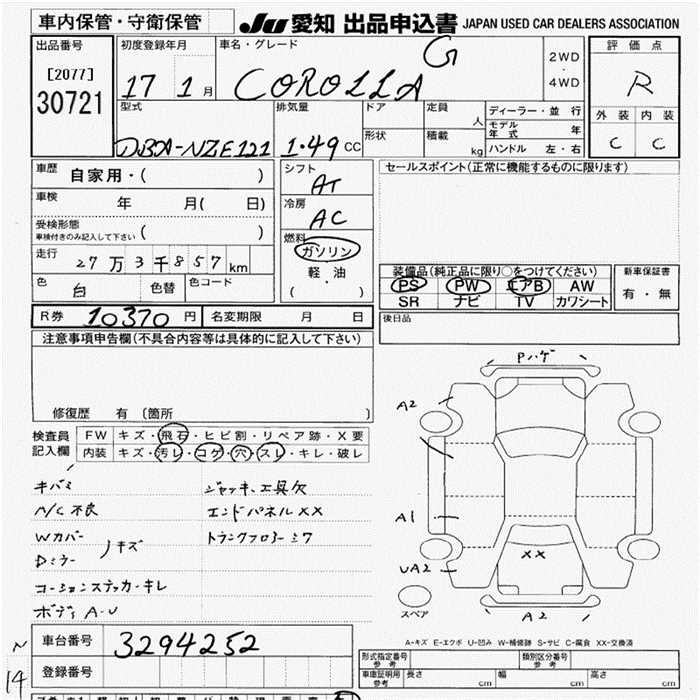 車内保管・守衛保管
JU 愛知 出品申込書 JAPAN USED CAR DEALERS ASSOCIATION
出品番号
[2077]
30721
初度登録年月
17 1 月
車名・グレード
COROLLA G
2WD
・
4WD
評価点
R
外装 内装
C C
型式
DBA-NZE121
排気量
1.49 CC
ドア
定員
人
形状
積載
kg
ディーラー・並行
モデル年式 年
ハンドル 左・右
車歴
自家用・( )
車検
年 月( 日)
受検形態
車検付きのみ記入して下さい ( )
走行
27万3千857km
色
白
色替
色コード
シフト
AT
冷房
AC
燃料
ガソリン
軽・油
( )
セールスポイント(正常に機能するものに限ります)
装備品(純正品に限り○をつけてください)
PS PW エアB AW
SR ナビ TV カワシート
新車保証書
有・無
後日品
R券 10370 円
名変期限 月 日
注意事項申告欄(不具合内容等は具体的に記入して下さい)
修復歴 有 〔箇所 〕
検査員
記入欄
FW キズ・飛石・ヒビ割・リペア跡・X要
内装 キズ・汚レ・コゲ・穴・スレ・キレ・破レ
キバミ
N/C不良
Wカバー
Dミラー
ノキズ
コーションステッカーキレ
ボディA-U
ジャッキ、工具欠
エンドパネルXX
トランクフロアーミワ
Pハゲ
A2
A1
UA2
XX
スペア
A2
A-キズ E-エクボ U-凹み W-補修跡 S-サビ C-腐食 XX-交換済
N
14
車台番号
3294252
登録番号
形式指定番号
参考
類別区分番号
参考
車庫証明用
参考
長さ cm
幅 cm
高さ cm